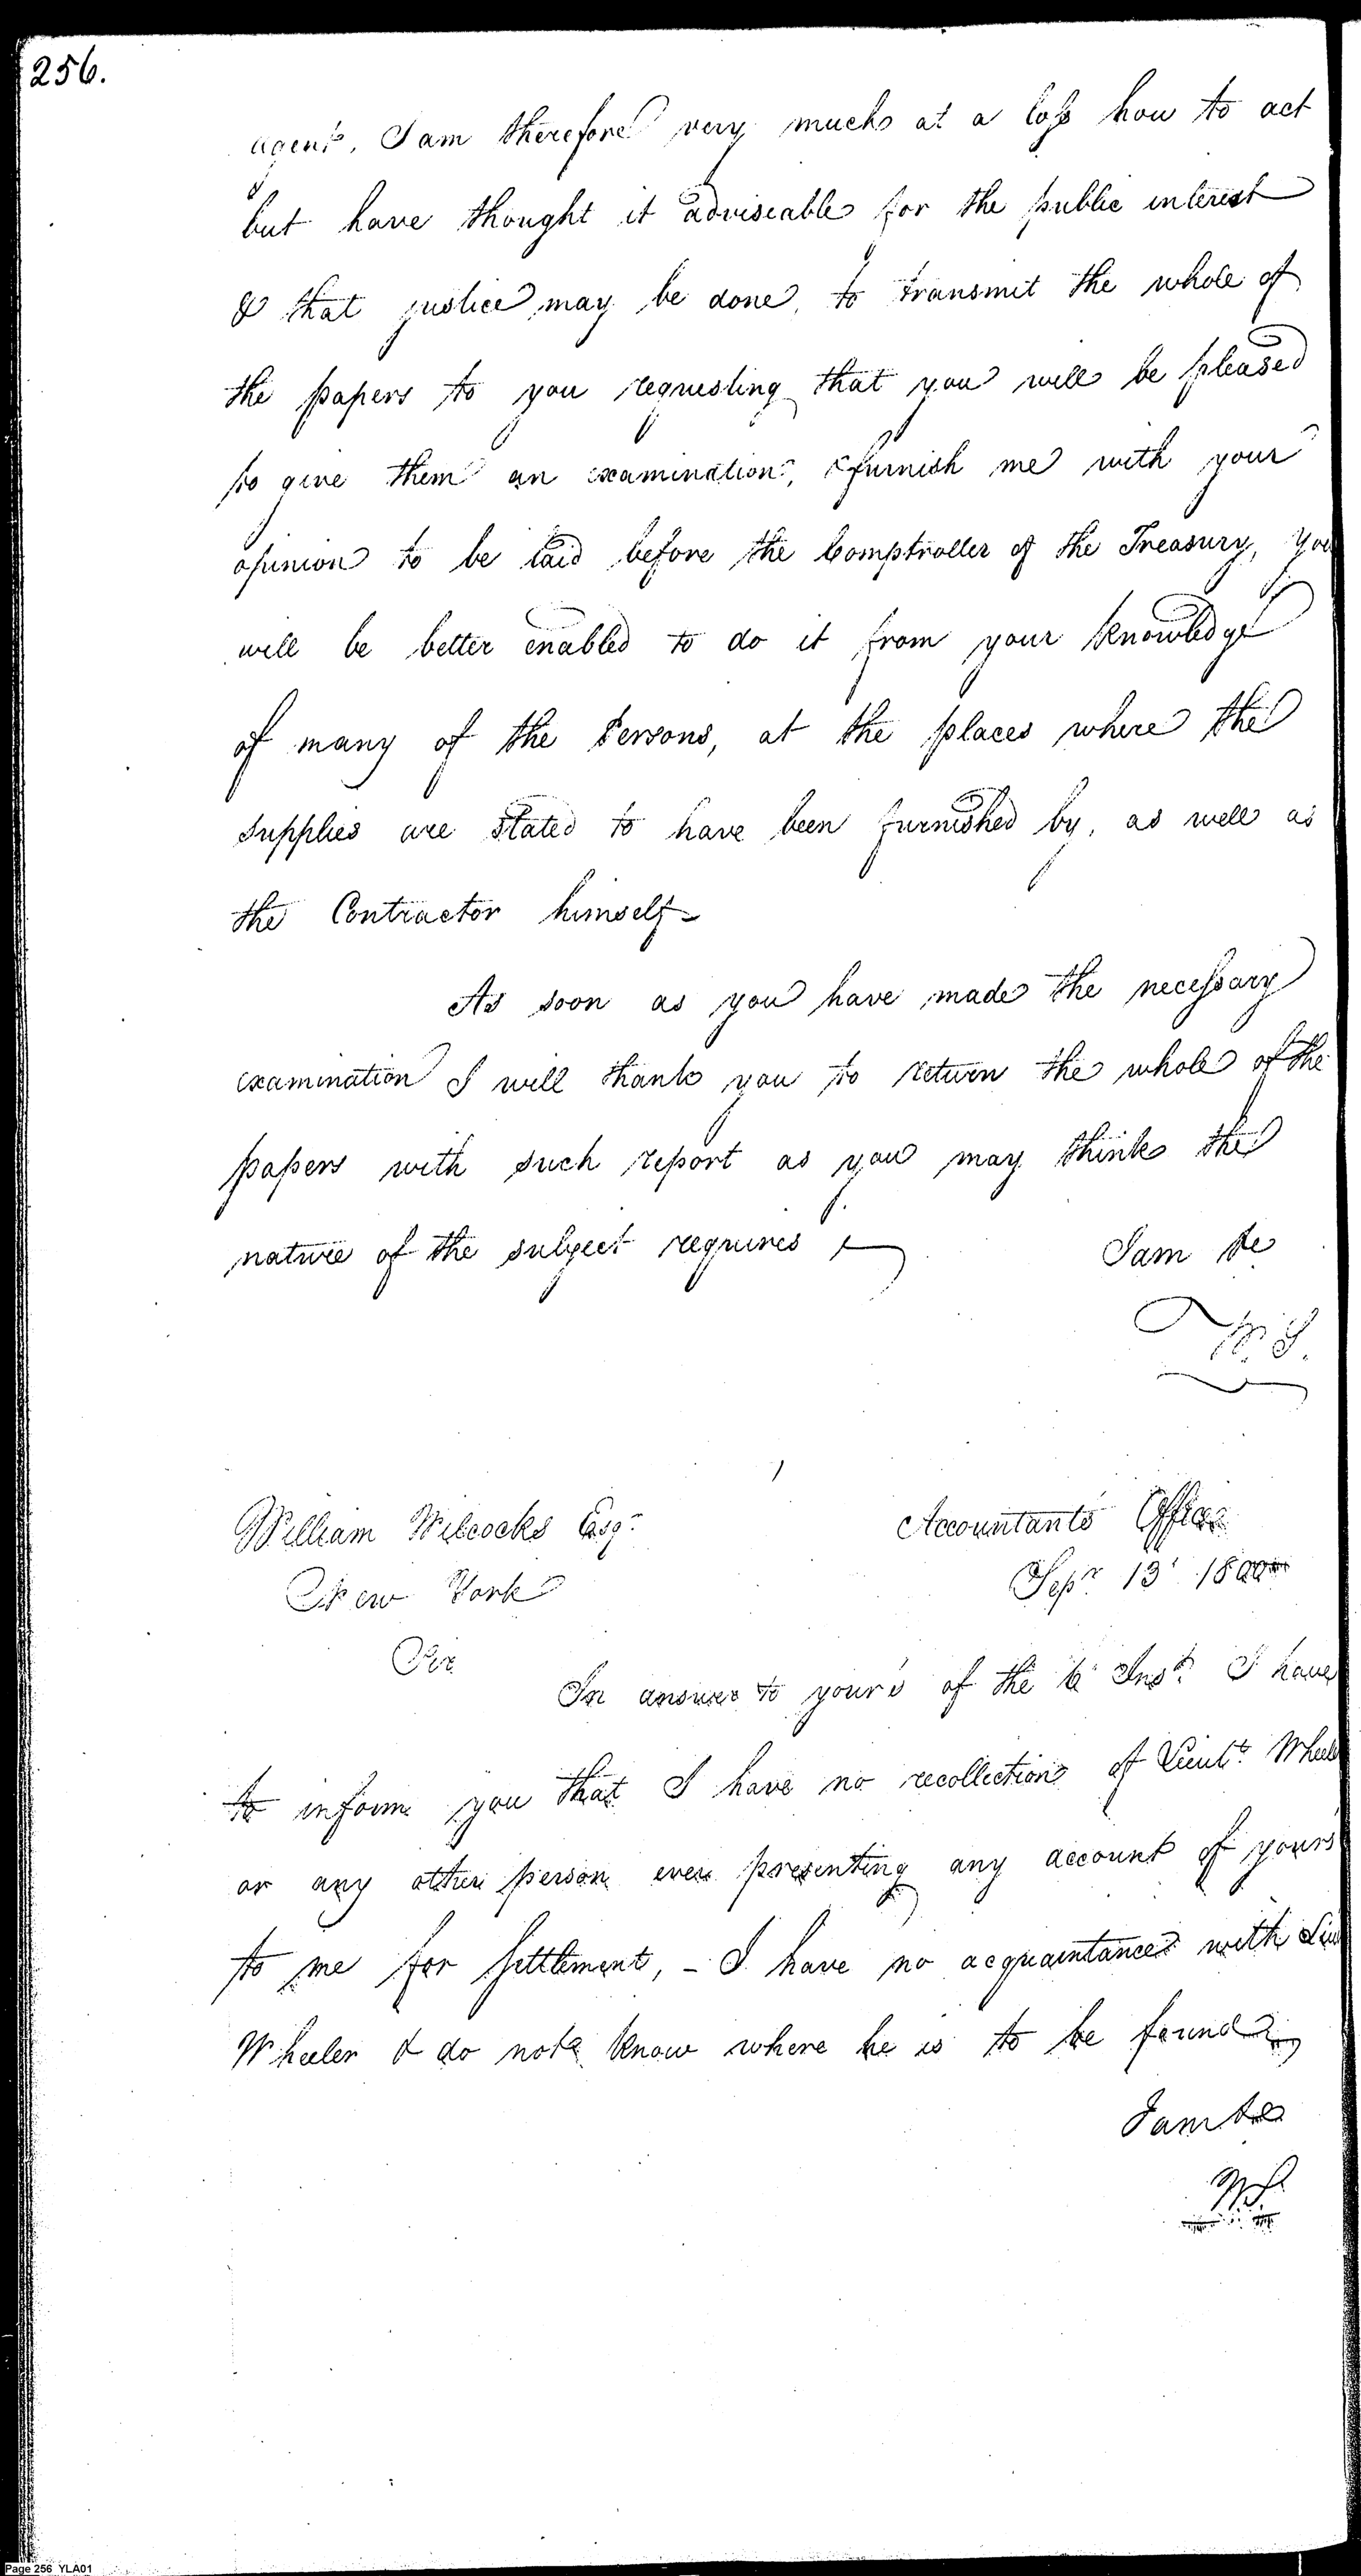 256.
agent, I am therefore very much at a loss how to act
but have thought it adviseable for the public interest
& that justice may be done, to transmit the whole of
the papers to you requesting that you will be pleased
to give them an examination, & furnish me with your
opinion to be laid before the Comptroller of the Treasury, you
will be better enabled to do it from your knowledge
of many of the Persons, at the places where the
supplies are stated to have been furnished by, as well as
the Contractor himself-
As soon as you have made the necessary
examination I will thank you to return the whole of the
papers with such report as you may think the
nature of the subject requires
I am &c
W. S.
William Wilcocks Esqr.
Accountants Office
New York
Sepr. 13 1800
Sir
In answer to your's of the 6 Inst. I have
to inform you that I have no recollection of Lieut. Wheel
or any other person ever presenting any account of yours
to me for Settlement, - I have no acquaintance with Lieu
Wheeler & do not know where he is to be found
I am &c
W S.
Page 256 YLA01